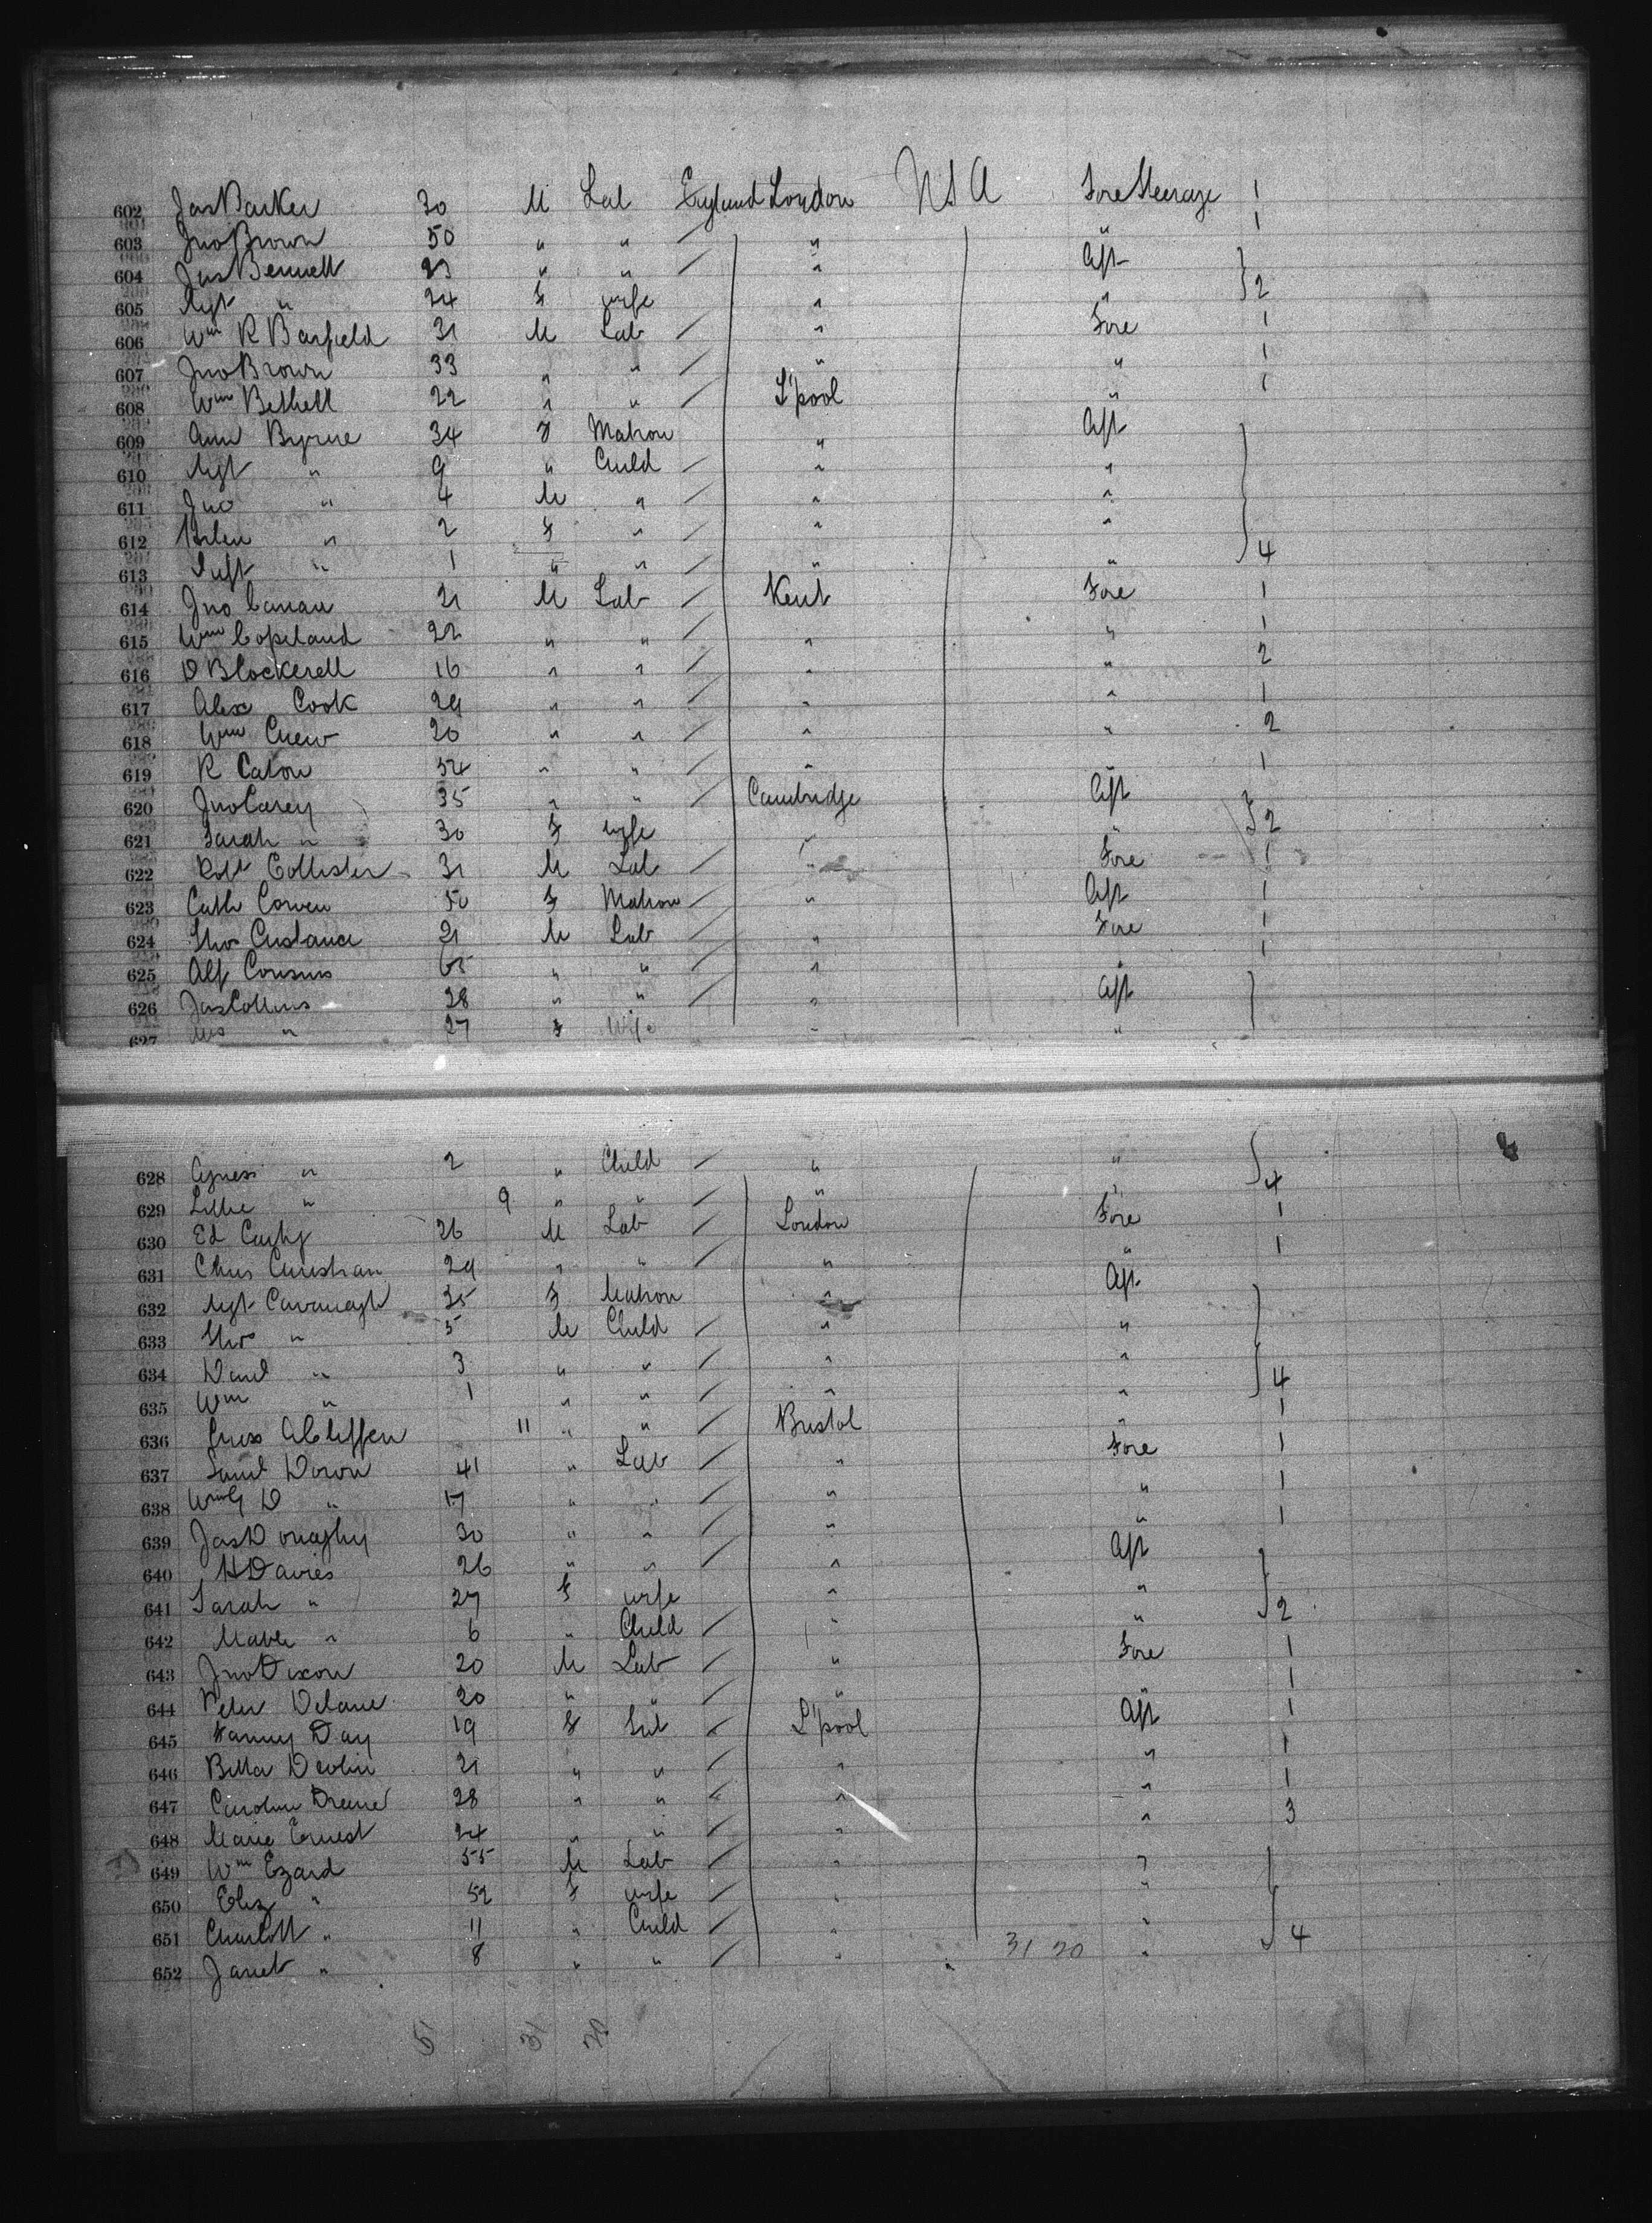 602 Jas Parker 30 M Lab England London U S A Fore Steerage 1
603 Jno Brown 50 " " / " " 1
604 Jas Bennett 23 " " / " Aft
605 Mgt " 24 F wife " " 2
606 Wm R Barfield 31 M Lab / " Fore 1
607 Jno Brown 33 " " / " " 1
608 Wm Bethell 22 " " / L'pool " 1
609 Ann Byrne 34 F Matron " Aft
610 Mgt " 9 " Child / " "
611 Jno " 4 M " / " "
612 Helen " 2 F " / " "
613 " 1 " " / " " 4
614 Jno 21 M Lab / Kent Fore 1
615 Wm Copeland 22 " " / " " 1
616 D Blockerell 16 " " / " " 2
617 Alex Cook 29 " " / " " 1
618 Wm Crew 20 " " / " " 2
619 R Caton 54 " " / " " 1
620 Jno Carey 35 " " / Cambridge Aft
621 Sarah " 30 F wife " " 2
622 Robt Collister 31 M Lab / " Fore 1
623 Cath Cowen 50 F Matron / " Aft 1
624 Thos Custance 21 M Lab / " Fore 1
625 Alf Cousins 65 " " / " " 1
626 Jas Collins 28 " " / " Aft
627 Mrs " 27 F Wife " "
628 Agness " 2 " Child / " " 4
629 Lillie " 9 " " / " "
630 Ed 26 M Lab / London Fore 1
631 Chas Christian 29 " " / " " 1
632 Mgt Cavanagh 35 F Matron " Aft
633 Thos " 5 M Child / " "
634 Danl " 3 " " / " "
635 Wm " 1 " " / " " 4
636 11 " " / Bristol " 1
637 Saml Down 41 " Lab / " Fore 1
638 Wm G D " 17 " " / " " 1
639 Jas Donaghy 30 " " / " " 1
640 H Davies 26 " " / " Aft
641 Sarah " 27 F wife " " 2
642 Mable " 6 " Child / " "
643 Jno Dixon 20 M Lab / " Fore 1
644 Peter Delane 20 " " / " " 1
645 Fanny Day 19 F / L'pool Aft 1
646 Bella Devlin 21 " " / " " 1
647 Caroline 28 " " / " " 1
648 Marie Ernest 24 " " / " " 3
649 Wm Ezard 55 M Lab / " "
650 Eliz " 52 F wife / " "
651 Charlott " 11 " Child / " " 4
652 Janet " 8 " " / " " 31 20 "
51 31 20